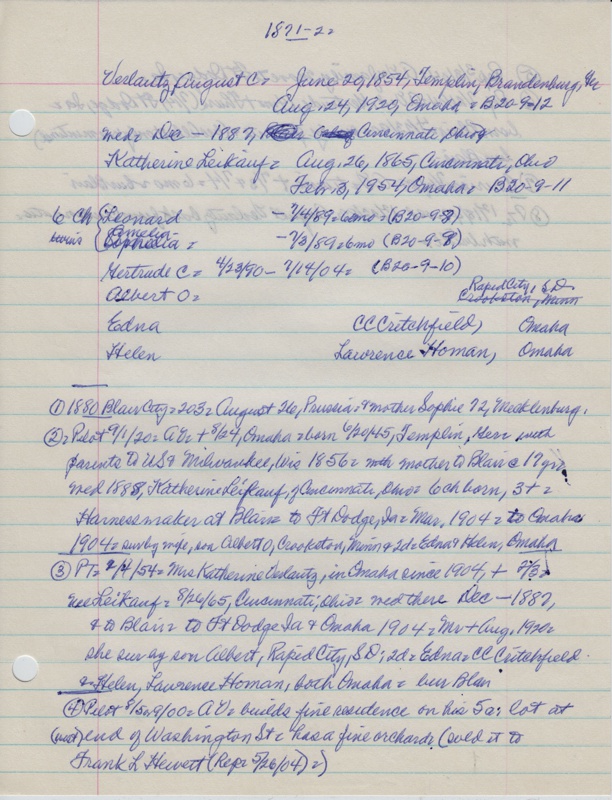 1871-2=
Verlautz, August C= June 20, 1854, Templin, Brandenburg, Ger
Aug. 24, 1920, Omaha = B20-9-12
med= Dec - 1887, Cincinnati, Ohio
Katherine Leikauf= Aug. 26, 1865, Cincinnati, Ohio
Feb 3, 1954, Omaha= B20-9-11
6 Ch { Leonard - 7/4/89=6mo=(B20-9-8)
twins Amelia-
Sophedia= - 7/3/89=6mo (B20-9-9)
Gertrude C= 4/23/90 - 7/14/04= (B20-9-10)
Albert O= Rapid City, S.D.
Crookston, Minn
Edna CC Critchfield, Omaha
Helen Lawrence Homan, Omaha
① 1880 Blair City=203= August 26, Prussia, & mother Sophie 72, Mecklenburg.
②= Pilot 9/1/20= AV= + 8/24, Omaha = born 6/20/45, Templin, Ger= with
parents to US & Milwaukee, Wis 1856= with mother to Blair c 17 yrs
med 1888, Katherine Leikauf, of Cincinnati, Ohio= 6 ch born, 3 + =
Harnessmaker at Blair= to Ft Dodge, Ia= Mar. 1904= to Omaha
1904= surv by wife, son Albert O, Crookston, Minn & 2d= Edna & Helen, Omaha
③ PT= 2/4/54= Mrs Katherine Verlautz, in Omaha since 1904, + 2/3=
nee Leikauf= 8/26/65, Cincinnati, Ohio= med there Dec - 1887,
& to Blair= to Ft Dodge Ia & Omaha 1904= Mr + Aug. 1920=
she sur by son Albert, Rapid City, S.D; 2d= Edna= CC Critchfield
& Helen, Lawrence Homan, both Omaha= bur Blair
④ Pilot 8/15=9/00= AV= builds fine residence on his 5a: lot at
(west) end of Washington St= has a fine orchard= (sold it to
Frank L Hewett (Rep= 5/26/04)=)